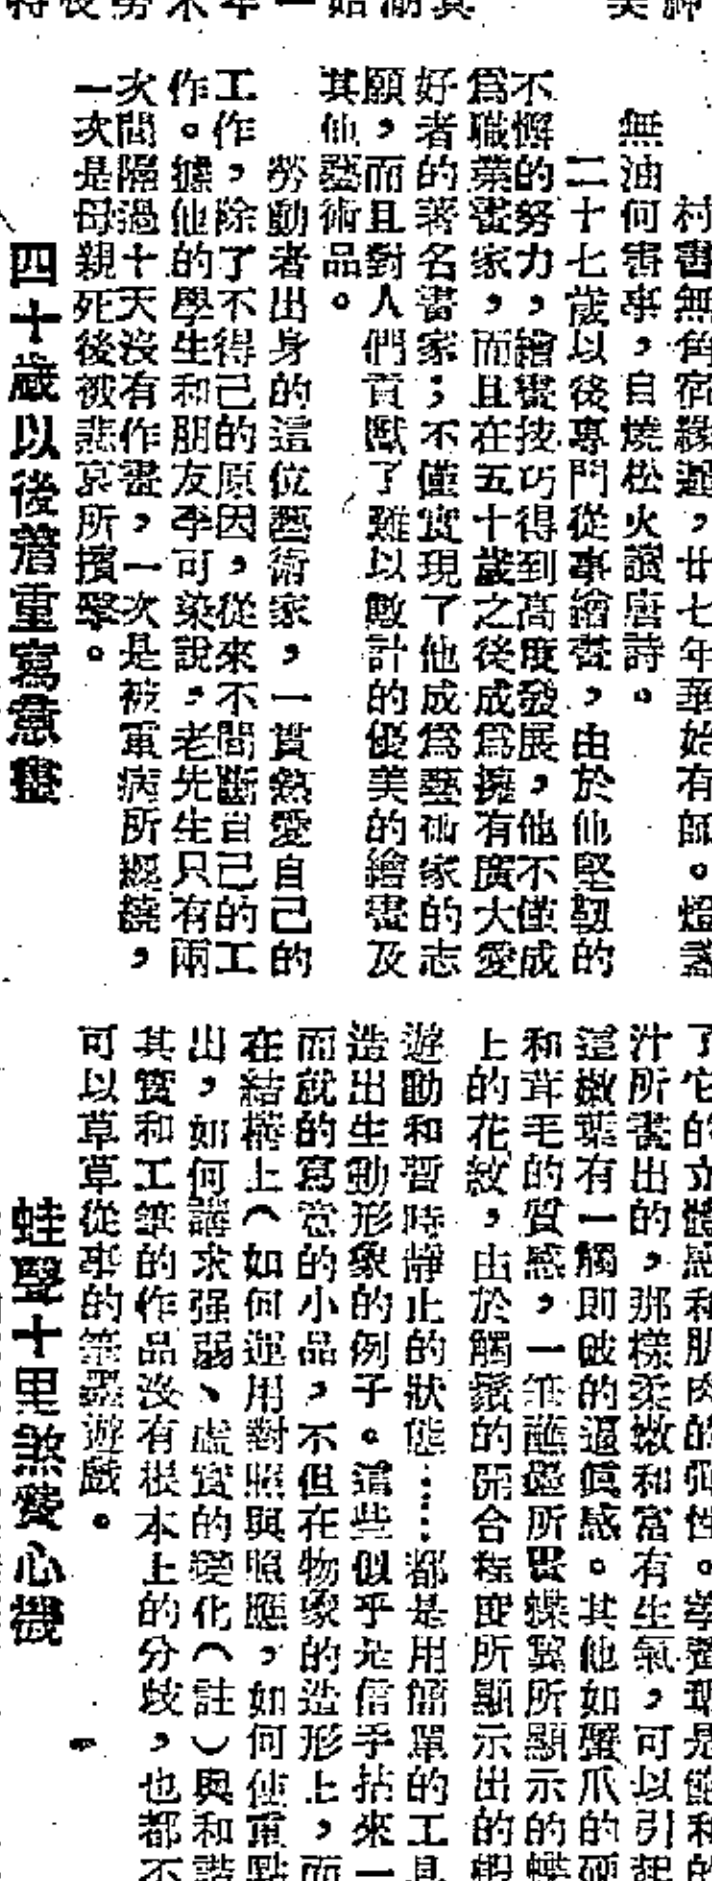 村書無角宿緣遲,廿七年華始有師。燈盞
無油何害事,自燒松火讀唐詩。
二十七歲以後專門從事繪畫,由於他堅韌的
不懈的努力,繪畫技巧得到高度發展,他不僅成
爲職業畫家,而且在五十歲之後成爲擁有廣大愛
好者的著名畫家;不僅實現了他成爲藝術家的志
願,而且對人們貢獻了難以數計的優美的繪畫及
其他藝術品。
勞動者出身的這位藝術家,一貫熱愛自己的
工作,除了不得已的原因,從來不間斷自己的工
作。據他的學生和朋友李可染說,老先生只有兩
次間隔過十天沒有作畫,一次是被重病所纏繞,
一次是母親死後被悲哀所擯擊。
四十歲以後着重寫意畫
了它的立體感和肌肉的彈性。
汁所畫出的,那樣柔嫩和富有生氣,可以引起
這嫩葉有一觸即破的逼眞感。其他如蟹爪的硬
和茸毛的質感,一筆蘸墨所畫蝶翼所顯示的蝶
上的花紋,由於觸鬚的開合程度所顯示出的蝦
遊動和暫時靜止的狀態……都是用簡單的工具
造出生動形象的例子。這些似乎是信手拈來一
而就的寫意的小品,不但在物象的造形上,而
在結構上(如何運用對照與照應,如何使重點
出,如何講求强弱、虛實的變化(註)與和諧
其實和工筆的作品沒有根本上的分歧,也都不
可以草草從事的筆墨遊戲。
蛙聲十里煞費心機